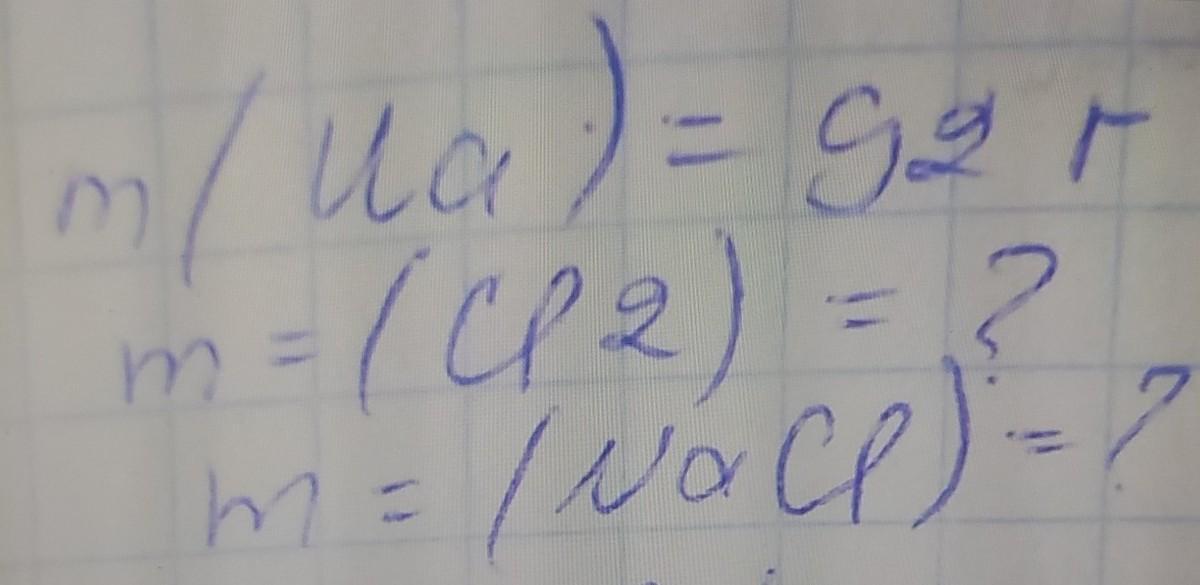 m(Na) = 92 г
m = (Cl2) = ?
m = (NaCl) = ?